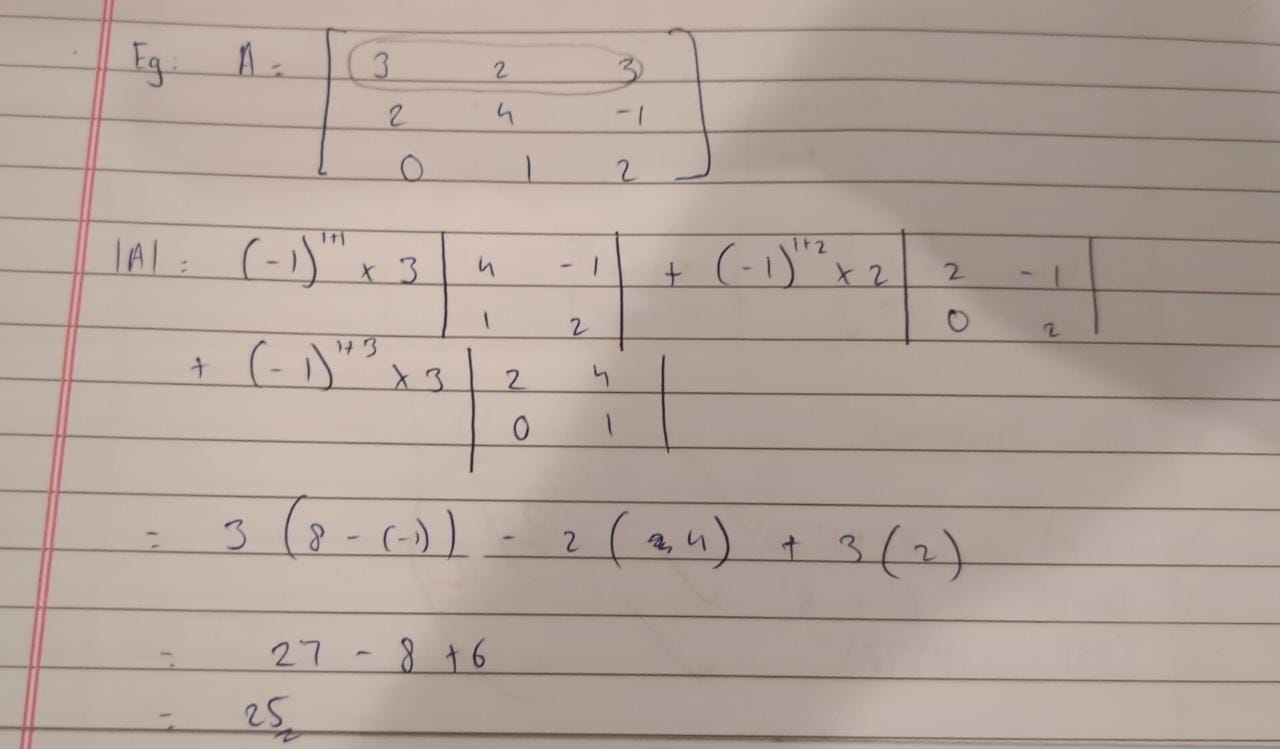 Eg: A = [ 3 2 3
2 4 -1
0 1 2 ]
|A| = (-1)^1+1 × 3 | 4 -1 | + (-1)^1+2 × 2 | 2 -1 |
| 1 2 | | 0 2 |
+ (-1)^1+3 × 3 | 2 4 |
| 0 1 |
= 3 (8 - (-1)) - 2 (4) + 3 (2)
= 27 - 8 + 6
= 25